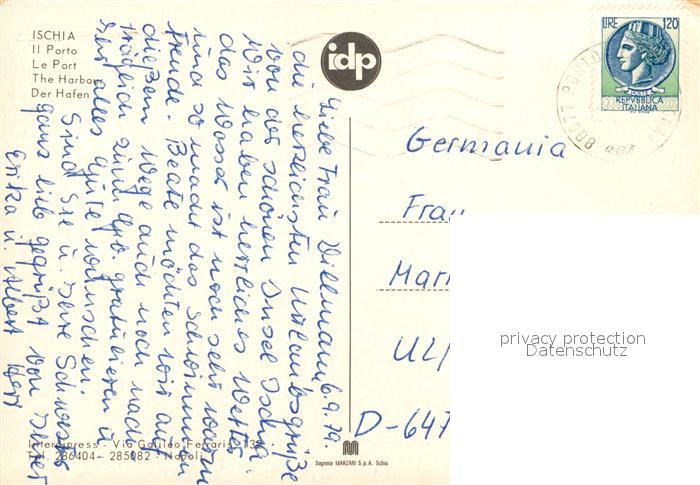 ISCHIA
Il Porto
Le Port
The Harbour
Der Hafen
idp
LIRE 120
REPVBBLICA
ITALIANA
80077 PORTO
6.9.79.
Liebe Frau Willmann,
die herzlichsten Urlaubsgrüße
von der schönen Insel Ischia.
Wir haben herrliches Wetter
das Wasser ist noch sehr warm
und so macht das Schwimmen
Freude. Beate möchten wir auf
diesem Wege auch noch nach-
träglich zum Geb. gratulieren u.
ihr alles Gute wünschen.
Sind Sie u. Ihre Schwester
ganz lieb gegrüßt von Ihrer
Erika u. Albert
Germania
Frau
UL
D-647
privacy protection
Datenschutz
Interdipress - Via Galileo Ferraris, 132
Tel. 286404 - 285082 - Napoli
Sogeme MARZARI S.p.A. Schio